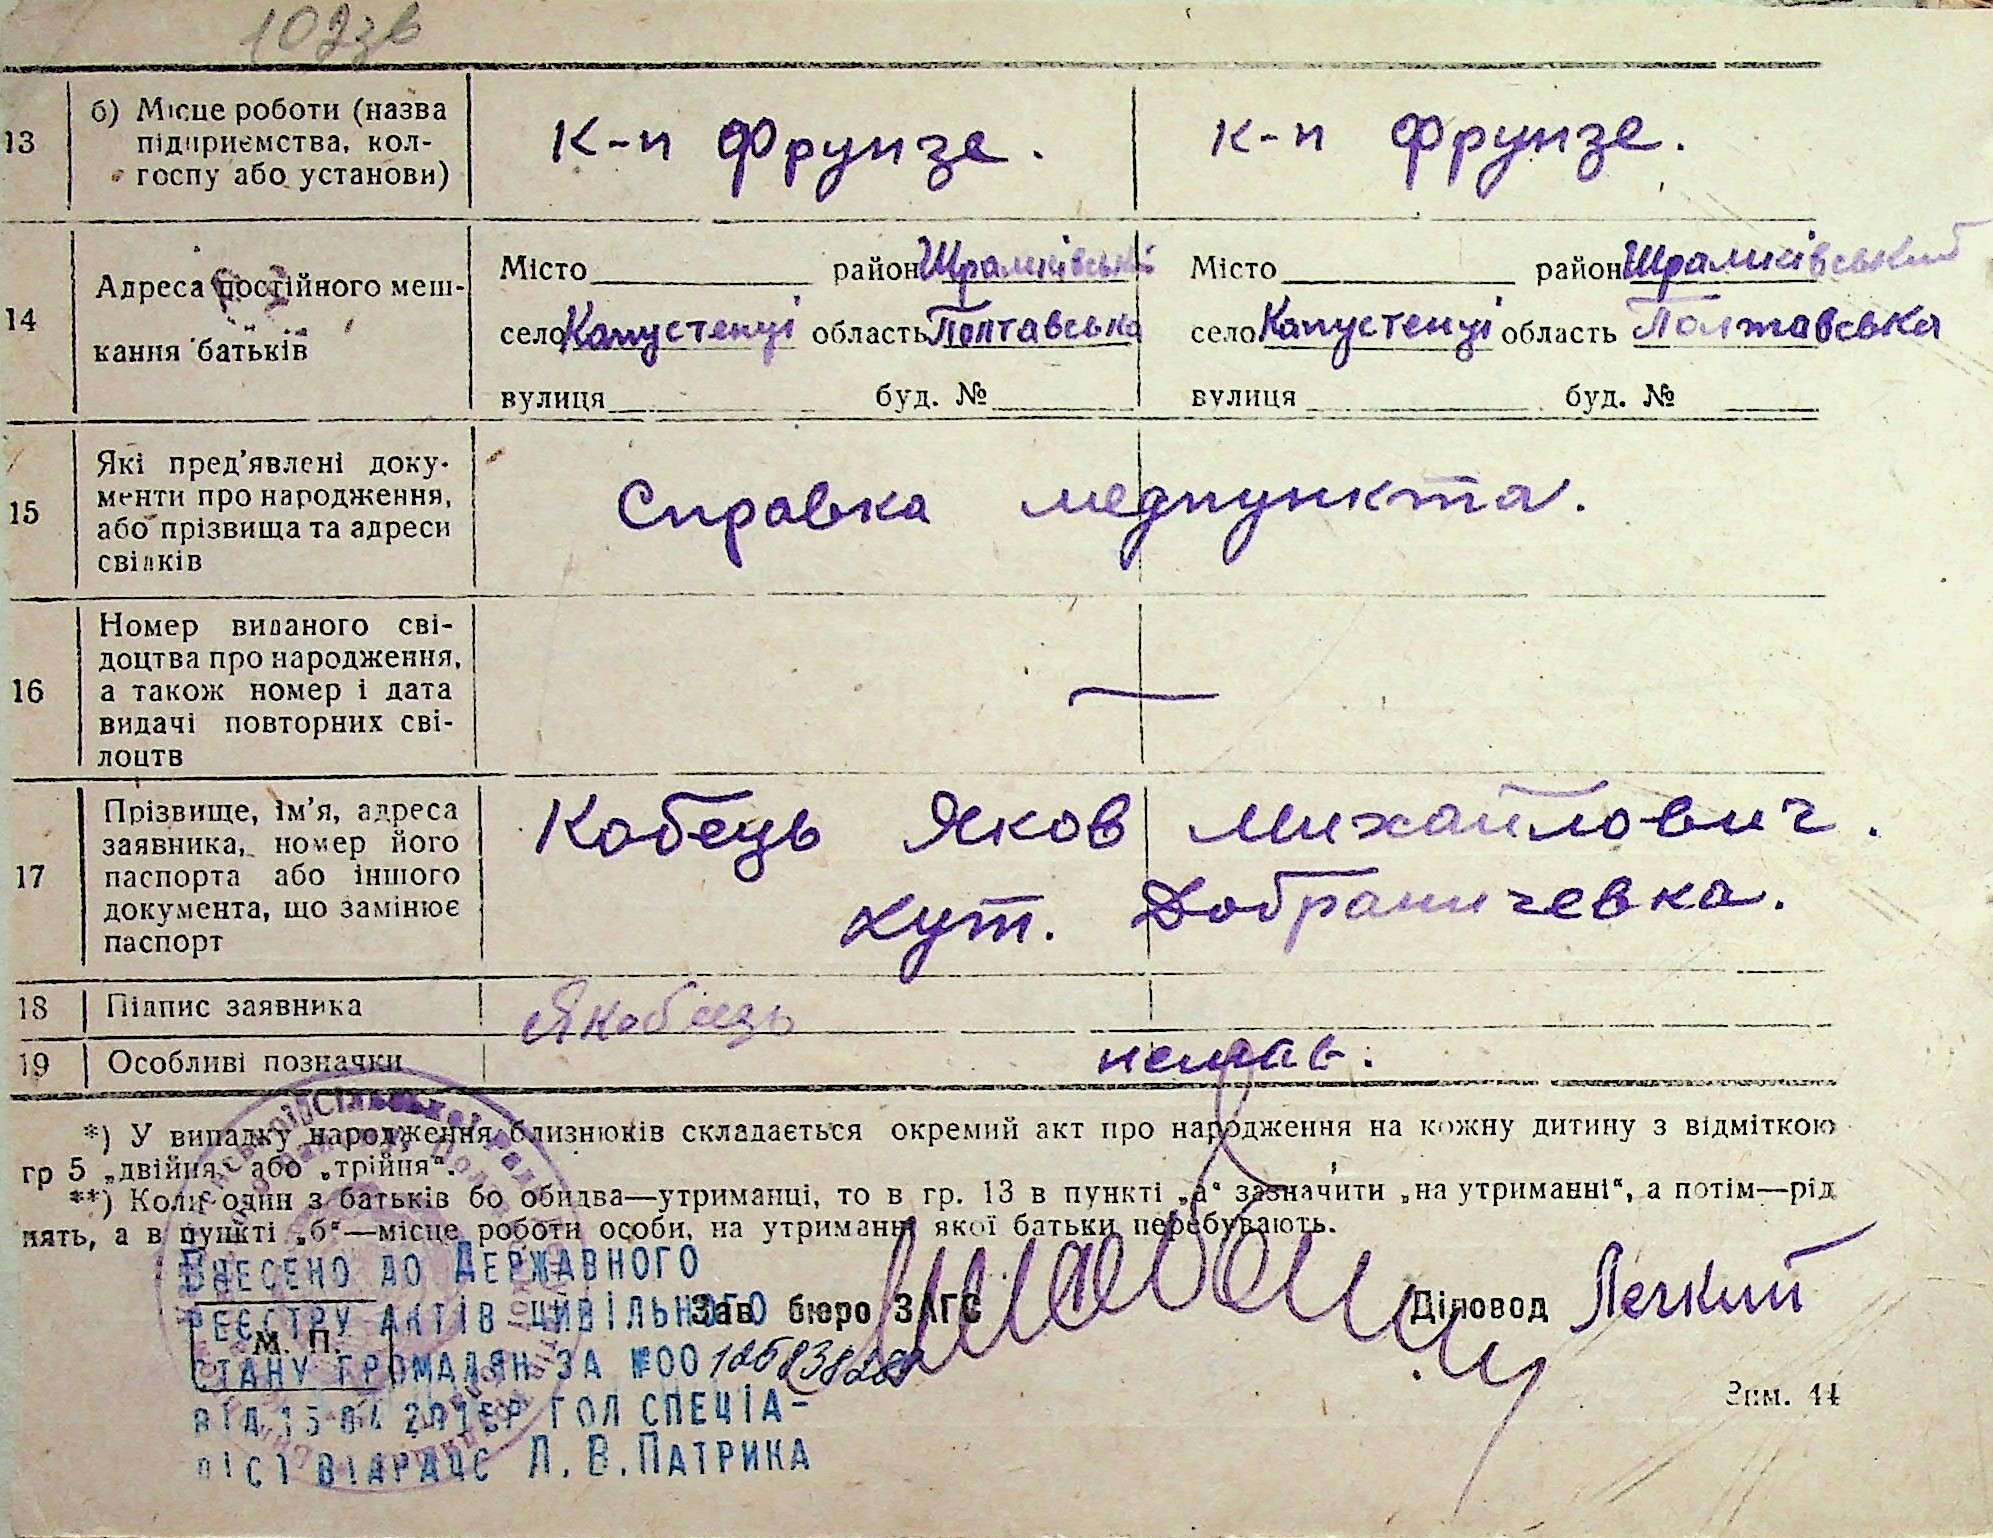 102зв
13 б) Місце роботи (назва підприємства, колгоспу або установи)
К-п Фрунзе. К-п Фрунзе.
14 Адреса постійного меш-
кання батьків
Місто район Шрамківський Місто район Шрамківський
село Капустенці область Полтавська село Капустенці область Полтавська
вулиця буд. № вулиця буд. №
15 Які пред'явлені доку-
менти про народження,
або прізвища та адреси
свідків
Справка медпункта.
16 Номер виданого сві-
доцтва про народження,
а також номер і дата
видачі повторних сві-
доцтв
—
17 Прізвище, ім'я, адреса
заявника, номер його
паспорта або іншого
документа, що замінює
паспорт
Кобець Яков Михайлович.
хут. Добраничевка.
18 Підпис заявника
ЯКобець
19 Особливі позначки
немає.
*) У випадку народження близнюків складається окремий акт про народження на кожну дитину з відміткою
гр 5 „двійня“ або „трійня“.
**) Коли один з батьків бо обидва—утриманці, то в гр. 13 в пункті „а“ зазначити „на утриманні“, а потім—рід
нять, а в пункті „б“—місце роботи особи, на утриманні якої батьки перебувають.
Внесено до Державного
реєстру актів цивільного
Зав. бюро ЗАГС Діловод Легкий
М. П.
стану громадян за №00
гол спеціа-
ліст Л. В. Патрика
Зам. 44